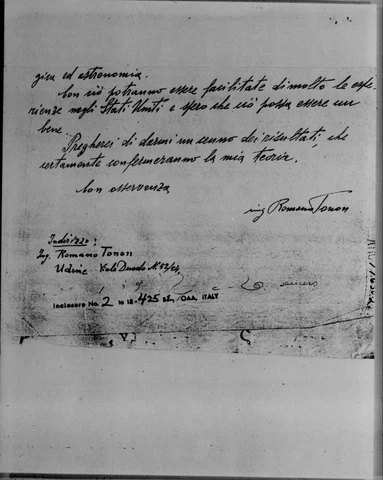 gica ed astronomia.
Con ciò potranno essere facilitate di molto le espe-
rienze negli Stati Uniti e spero che ciò possa essere un
bene.
Pregherei di darmi un cenno dei risultati, che
certamente confermeranno la mia teoria.
Con osservanza
ing Romano Tonon
Indirizzo:
Ing. Romano Tonon
Udine Viale Duodo N. 52/
Inclosure No. 2 to IR-425 /OAA, ITALY